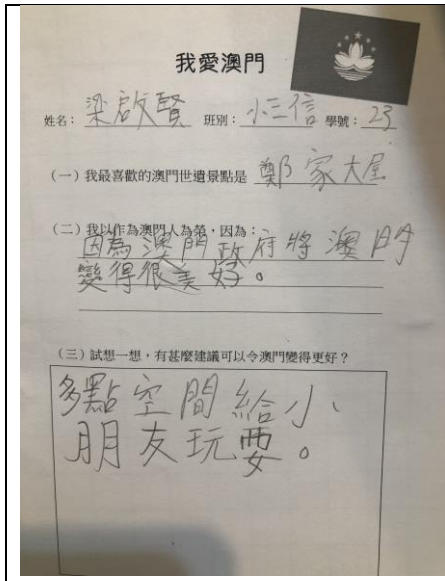 我愛澳門
姓名：梁啟賢 班別：小三信 學號：23
（一）我最喜歡的澳門世遺景點是 鄭家大屋
（二）我以作為澳門人為榮，因為：
因為澳門政府將澳門
變得很美好。
（三）試想一想，有甚麼建議可以令澳門變得更好？
多點空間給小
朋友玩耍。